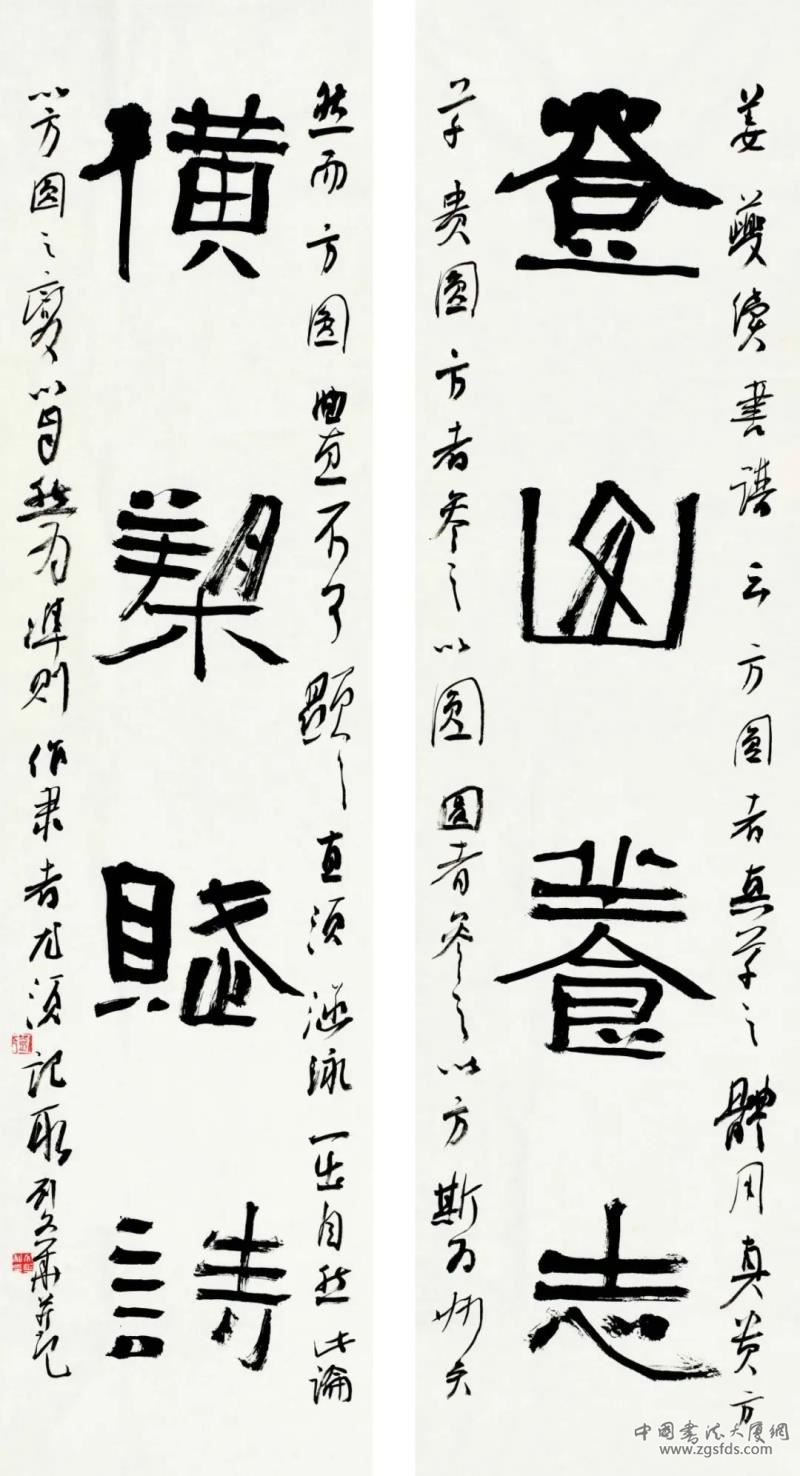 登山養志
橫槊賦詩
姜夔續書譜云方圓者真草之體用真貴方
草貴圓方者參之以圓圓者參之以方斯為妙矣
然而方圓曲直不可顯顯直須涵泳一出自然此論
以方圓之變以自然為準則作隶者尤須記取劉文華并記
中國書法大廈網
www.zgsfds.com